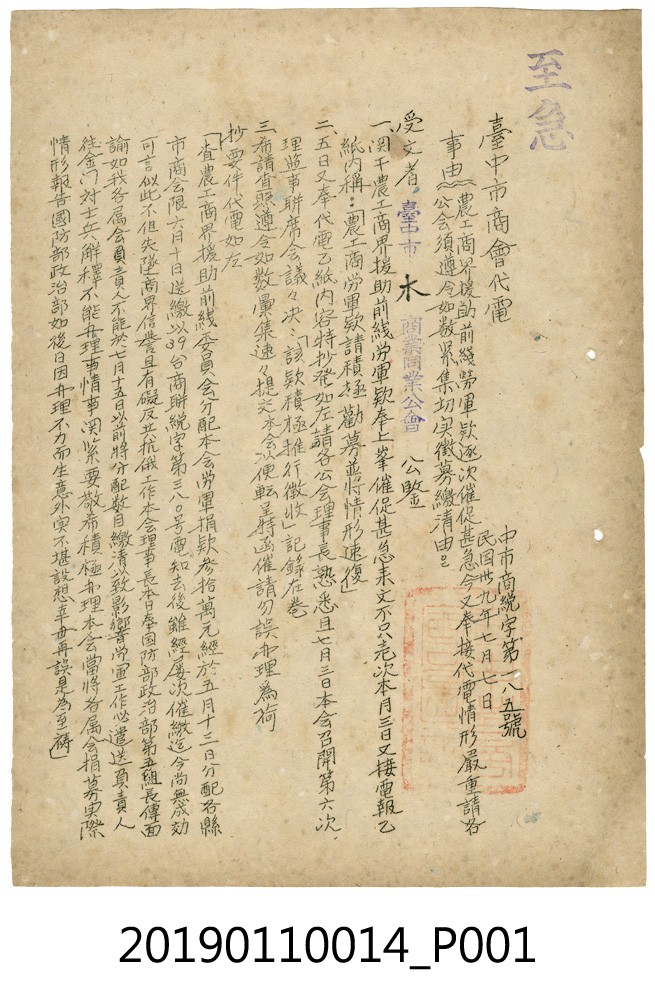 至急
臺中市商會代電
中市商統字第一八五號
民國卅九年七月七日
事由：農工商界援助前綫勞軍欵逐次催促甚急今又奉接代電情形嚴重請各
公会須遵令如数累集切实徵募繳清由
受文者：臺中市木商業同業公會 公鑒
一、関于農工商界援助前綫勞軍欵奉上峯催促甚急来文不只壱次本月三日又接電報乙
紙内稱：「農工商勞軍欵請積極勸募並將情形速復」
二、五日又奉代電乙紙内容特抄發如左請各公会理事長熟悉且七月三日本会召開第六次
理监事聯席会議々决：「該欵積極推行徵收」記錄在卷
三、希請查照遵令如数彙集速々提交本会以便転呈特函催請勿誤办理為荷
抄要件代電如左
「查農工商界援助前綫委員会分配本会勞軍捐欵参拾萬元經於五月十三日分配各縣
市商会限六月十日送繳以39台商联統字第三八0号電知去後雖經屡次催繳迄今尚無成効
可言似此不但失墜商界信誉且有礙反共抗俄工作本会理事長本日奉国防部政治部第五組長傳面
諭如我各属会負責人不能於七月十五日以前將分配数目繳清以致影響勞軍工作必遣送負責人
往金门对士兵解釋不能办理事情事関紧要敬希積極办理本会當將各属会捐募实際
情形報告國防部政治部如後日因办理不力而生意外实不堪設想幸毋再誤是為至禱」
20190110014_P001